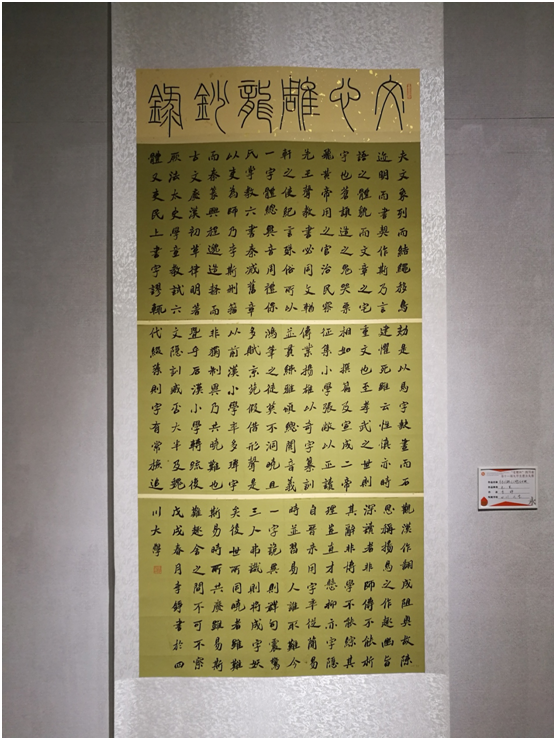 文心雕龍鈔錄
夫文象列而結繩移鳥
迹明而書契作斯乃言
語之體貌而文章之宅
宇也蒼頡造之鬼哭粟
飛黃帝用之官治民察
先王聲教書必同文輶
軒之使紀言殊俗所以
一字體總異音周禮保
氏掌教六書秦滅舊章
以吏為師乃李斯刪籀
而秦篆興程邈造隸而
古文廢漢初草律明著
厥法太史學童教試六
體又吏民上書字謬輒
劾是以馬字缺畫而石
建懼死雖云性慎亦時
重文也至孝武之世則
相如撰篇及宣成二帝
徵集小學張敞以正讀
傳業揚雄以奇字纂訓
並貫練雅頌總閱音義
鴻筆之徒莫不洞曉且
多賦京苑假借形聲是
以前漢小學率多瑋字
非獨制異乃共曉難也
暨乎后漢小學轉疏復
文隱訓臧否大半及魏
代綴藻則字有常檢追
觀漢作翻成阻奧故陳
思稱揚馬之作趣幽旨
深讀者非師傳不能析
其辭非博學不能綜其
理豈直才懸抑亦字隱
自晉來用字率從簡易
時並習易人誰取難今
一字詭異則群句震驚
三人弗識則將成字妖
矣後世所同曉者雖難
斯易時所共廢雖易斯
難趣舍之間不可不察
戊戌春月李錚書於四
川大學